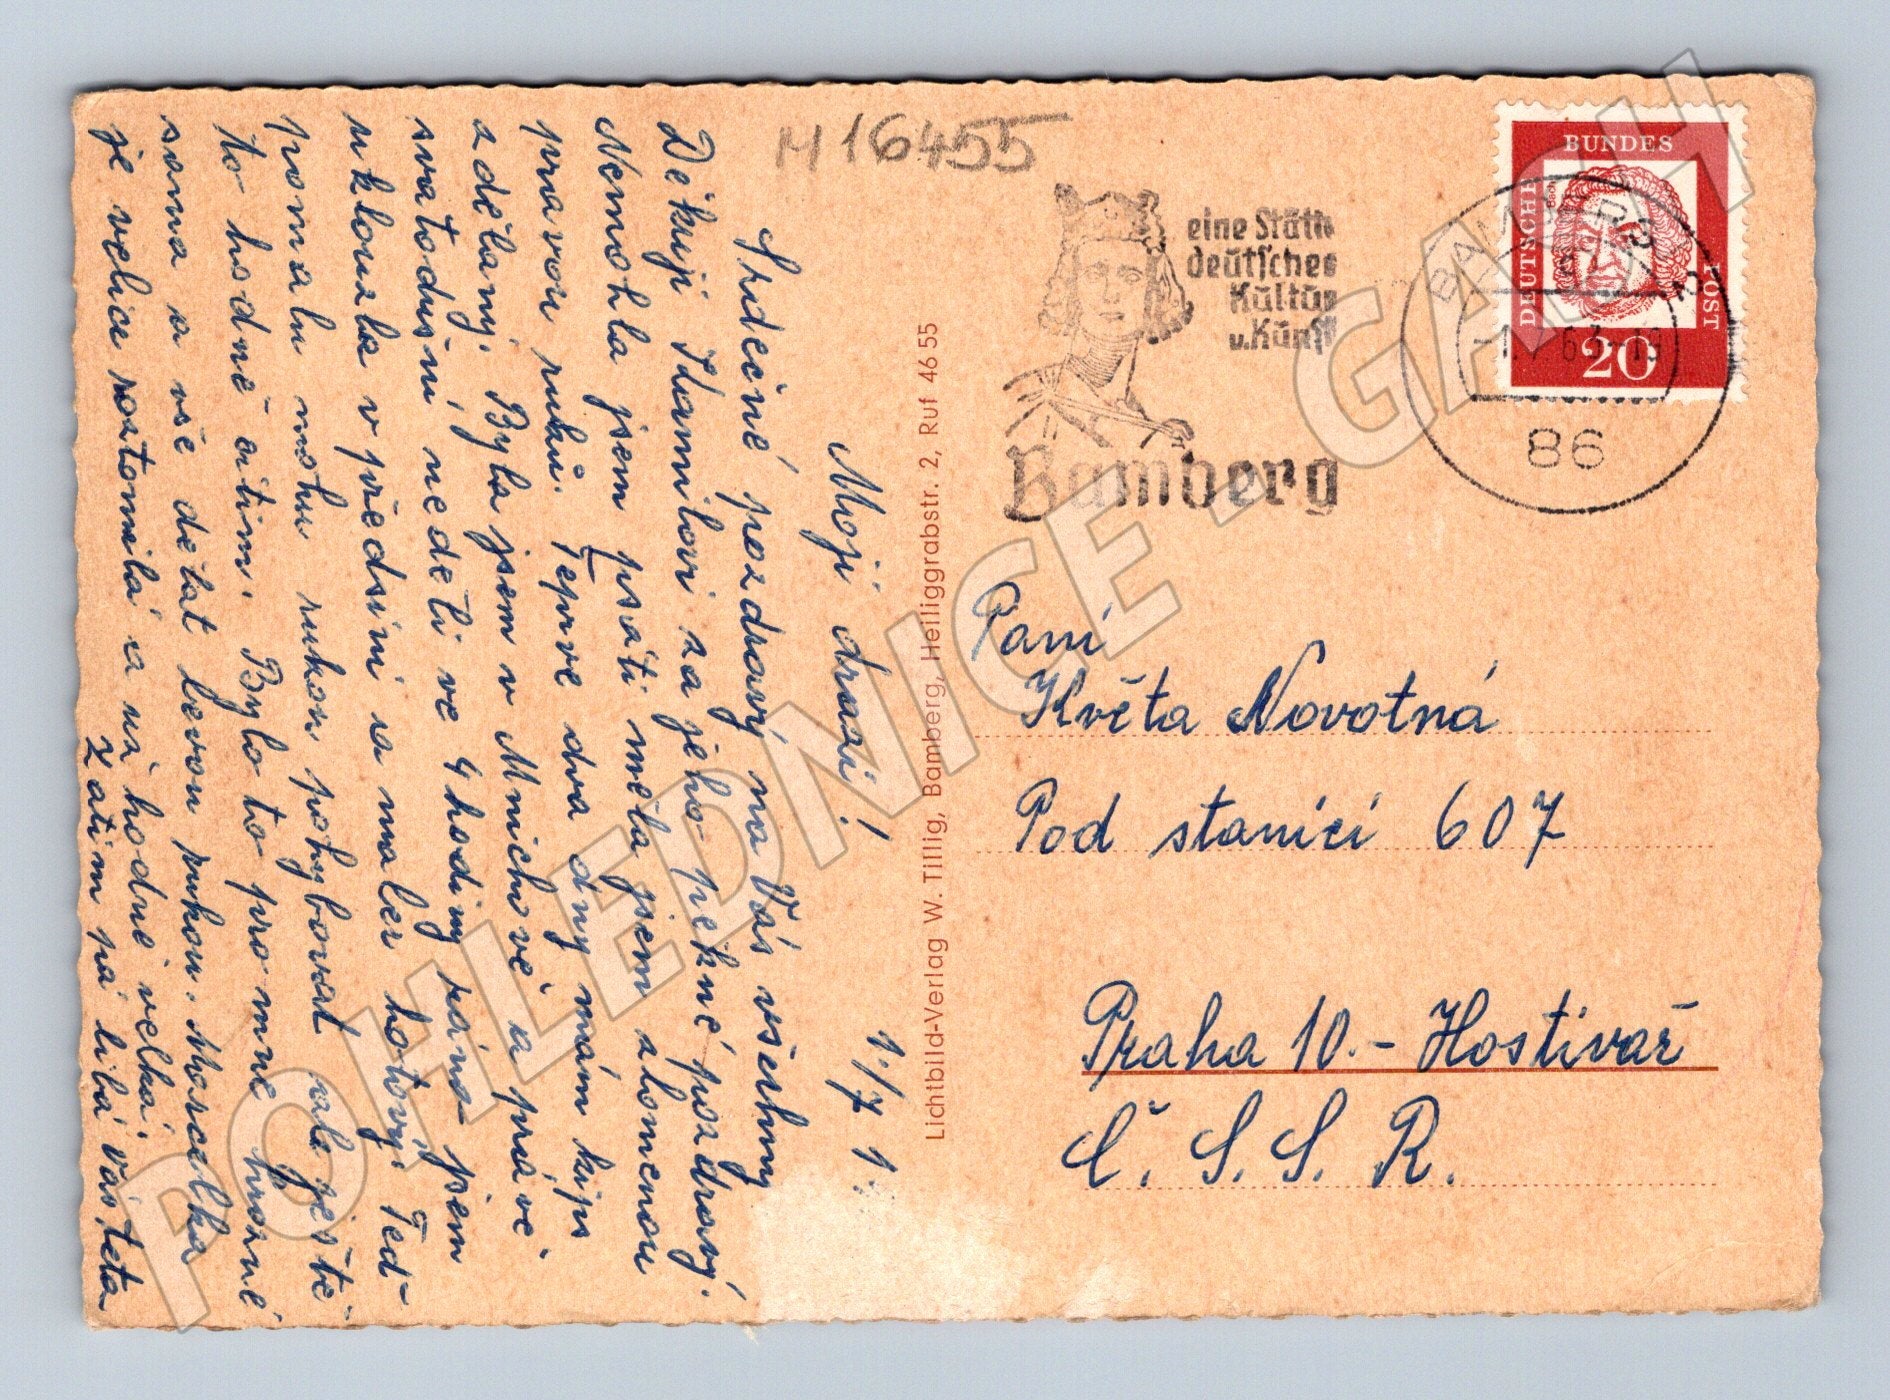 M 16455
Moji drazí! 1./7 1.
Srdečné pozdravy na Vás všechny
Děkuji Kamilovi za jeho pěkné pozdravy.
Nemohla jsem psáti měla jsem zlomenou
pravou ruku. Teprve dva dny mám kips
zdělaný. Byla jsem v Mnichově a právě
svatodušní neděli ve 4 hodiny ráno jsem
uklouzla v předsíni a malér hotový. Teď
pomalu mohu rukou pohybovat ale ještě
to hodně cítím. Bylo to pro mne hrozné
sama a vše dělat levou rukou. Marcelka
je velice roztomilá a už hodně velká.
Zatím pá líbá vás teta
Lichtbild-Verlag W. Tillig, Bamberg, Heiliggrabstr. 2, Ruf 46 55
eine Stätte
deutscher
Kultur
u. Kunst
Bamberg
BAMBERG 2
-1.7.63-19
86
DEUTSCHE
BUNDES
POST
20
Paní
Květa Novotná
Pod stanicí 607
Praha 10.- Hostivař
Č. S. S. R.
POHLEDNICE - GACH